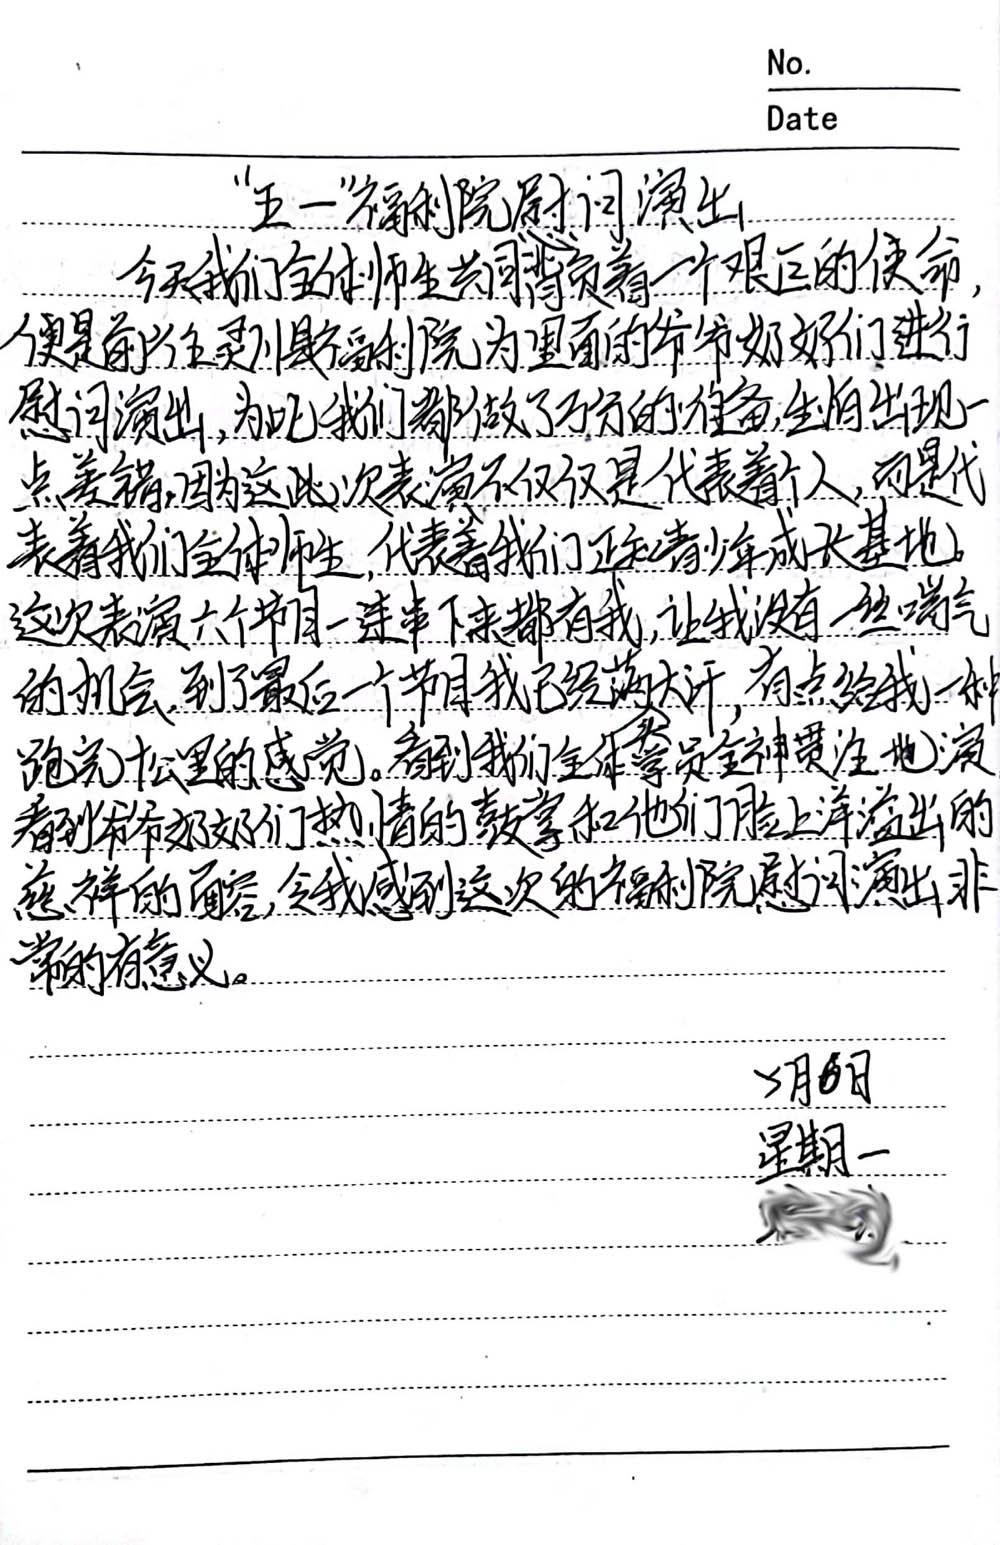 No.
Date
“五一”福利院慰问演出
今天我们全体师生共同背负着一个艰巨的使命，
便是前往灵川县福利院为里面的爷爷奶奶们进行
慰问演出，为此我们都做了万分的准备，生怕出现一
点差错，因为这此次表演不仅仅是代表着个人，而是代
表着我们全体师生，代表着我们正和青少年成长基地。
这次表演六个节目一连串下来都有我，让我没有一丝喘气
的机会，到了最后一个节目我已经满头大汗，有点给我一种
跑完十公里的感觉。看到我们全体学员全神贯注地演
看到爷爷奶奶们热情的鼓掌和他们脸上洋溢出的
慈祥的面容，令我感到这次的福利院慰问演出非
常的有意义。
5月6日
星期一